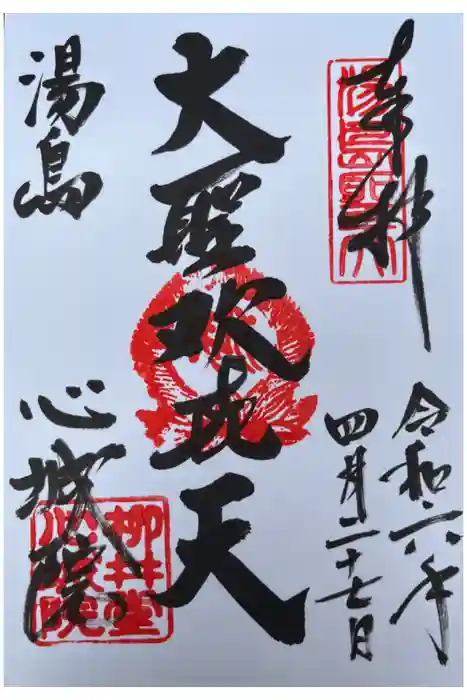 奉拝
湯島聖天
令和六年
四月二十七日
大聖歓喜天
湯島
心城院
柳井堂
心城院